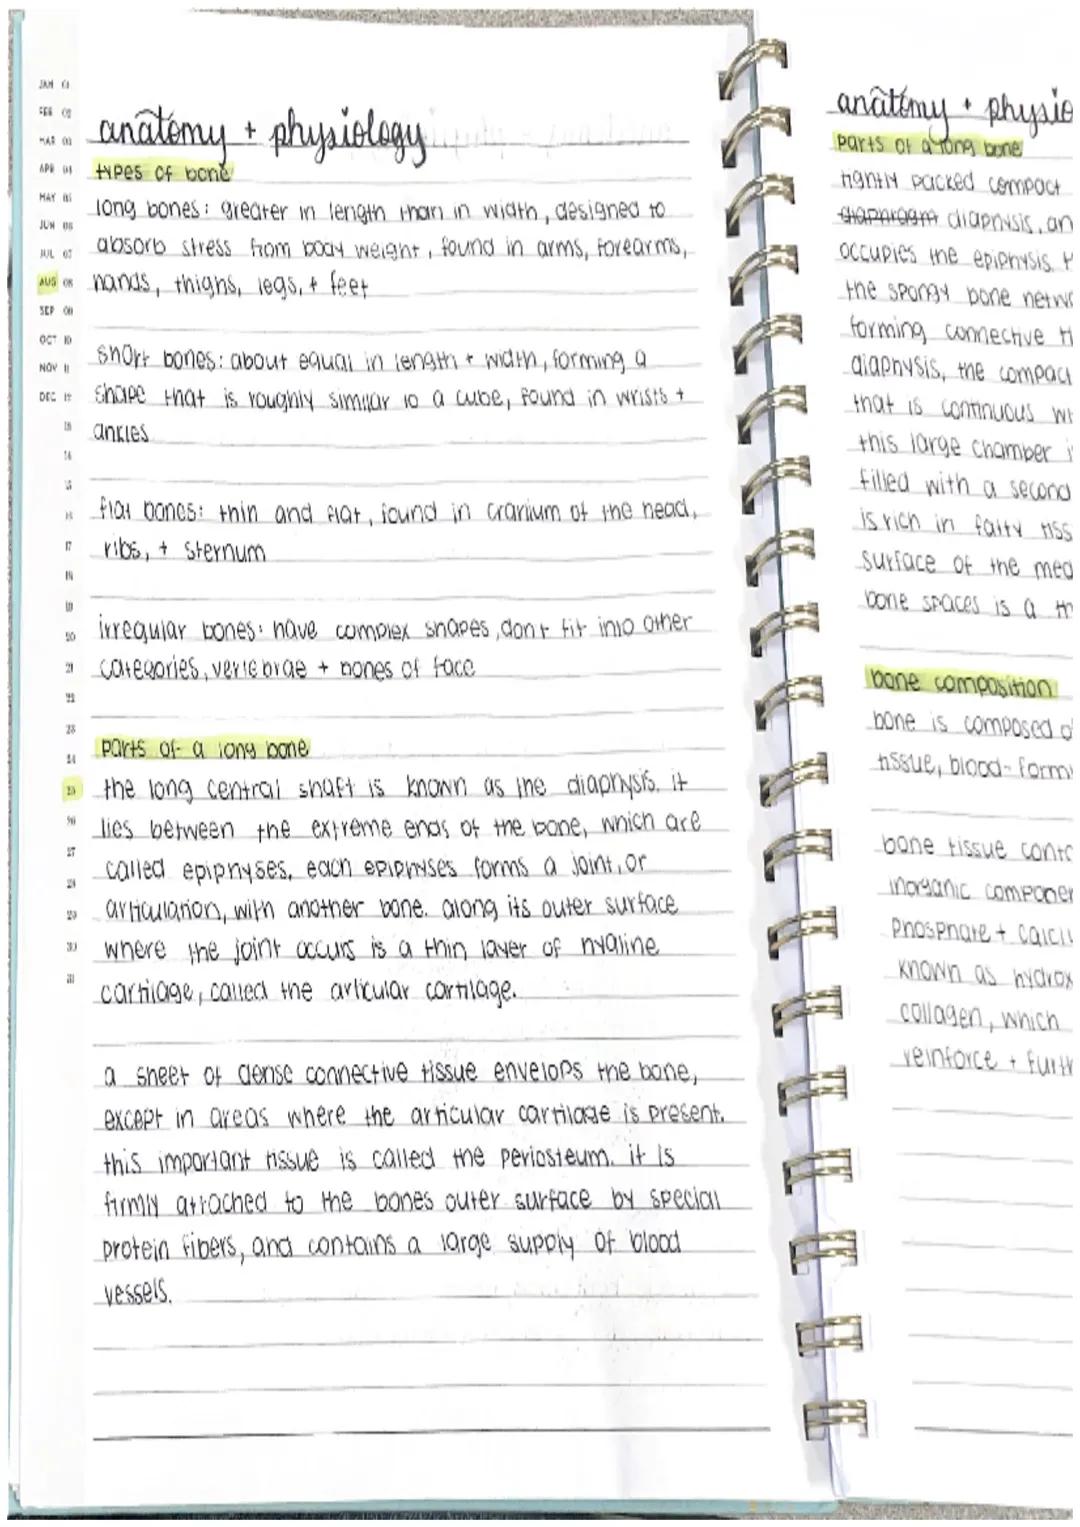 JAN 01
FEB 02
MAR 03
APR 04
MAY 05
JUN 06
JUL 07
AUG 08
SEP 09
OCT 10
NOV 11
DEC 12
13
14
15
16
17
18
19
20
21
22
23
24
25
26
27
28
29
30
31
anatomy + physiology
types of bone
long bones: greater in length than in width, designed to
absorb stress from body weight, found in arms, forearms,
hands, thighs, legs, + feet
short bones: about equal in length + width, forming a
shape that is roughly similar to a cube, found in wrists +
ankles
flat bones: thin and flat, found in cranium of the head,
ribs, + sternum
irregular bones: have complex shapes, dont fit into other
categories, vertebrae + bones of face
parts of a long bone
the long central shaft is known as the diaphysis. it
lies between the extreme ends of the bone, which are
called epiphyses. each epiphyses forms a joint, or
articulation, with another bone. along its outer surface
where the joint occurs is a thin layer of hyaline
cartilage, called the articular cartilage.
a sheet of dense connective tissue envelops the bone,
except in areas where the articular cartilage is present.
this important tissue is called the periosteum. it is
firmly attached to the bones outer surface by special
protein fibers, and contains a large supply of blood
vessels.
anatomy + physio
parts of a long bone
tightly packed compact
diaphragm diaphysis, an
occupies the epiphysis. t
the spongy bone netwo
forming connective ti
diaphysis, the compact
that is continuous wi
this large chamber i
filled with a second
is rich in fatty tiss
surface of the med
bone spaces is a th
bone composition
bone is composed o
tissue, blood-formi
bone tissue conta
inorganic componen
phosphate + calciu
known as hydrox
collagen, which
reinforce + furth